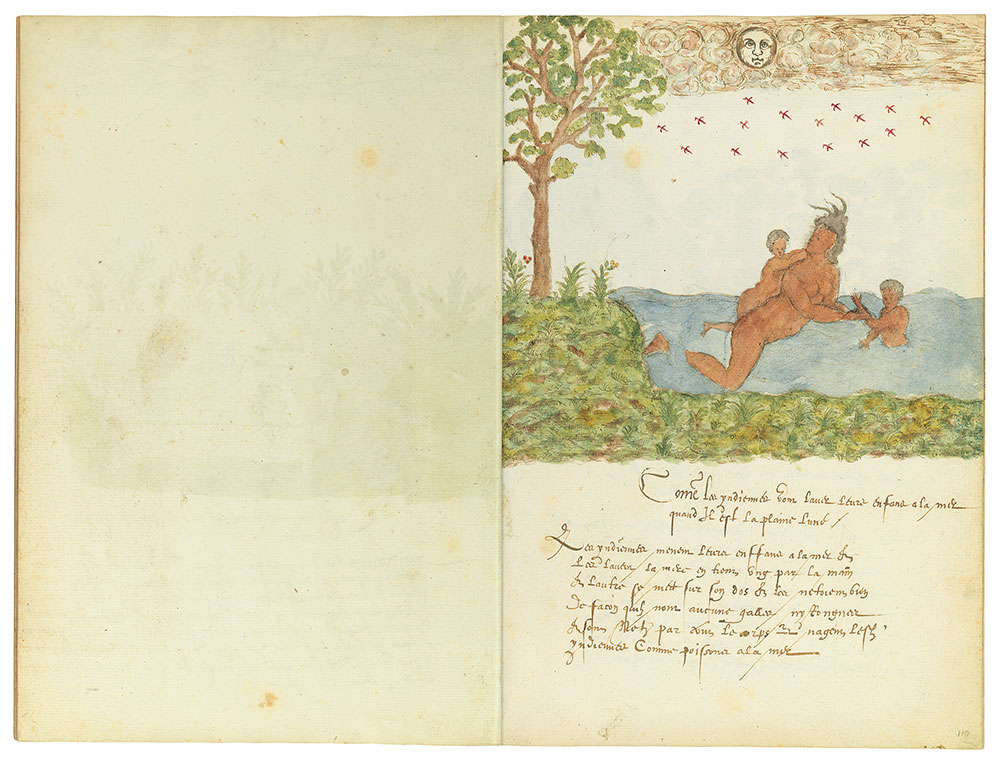 Come les yndiennes vont laver leurs enfans a la mer
quand Il est la plaine lune
Les yndiennes menent leurs enffans a la mer &
Les lavent la mere en tient ung par la main
& lautre se mett sur son dos & les netoient bien
De facon quilz nont aucune galle ny Rongne
& sont Netz par tout le corps & nagent lesd
yndiennes Comme poissons a la mer
110